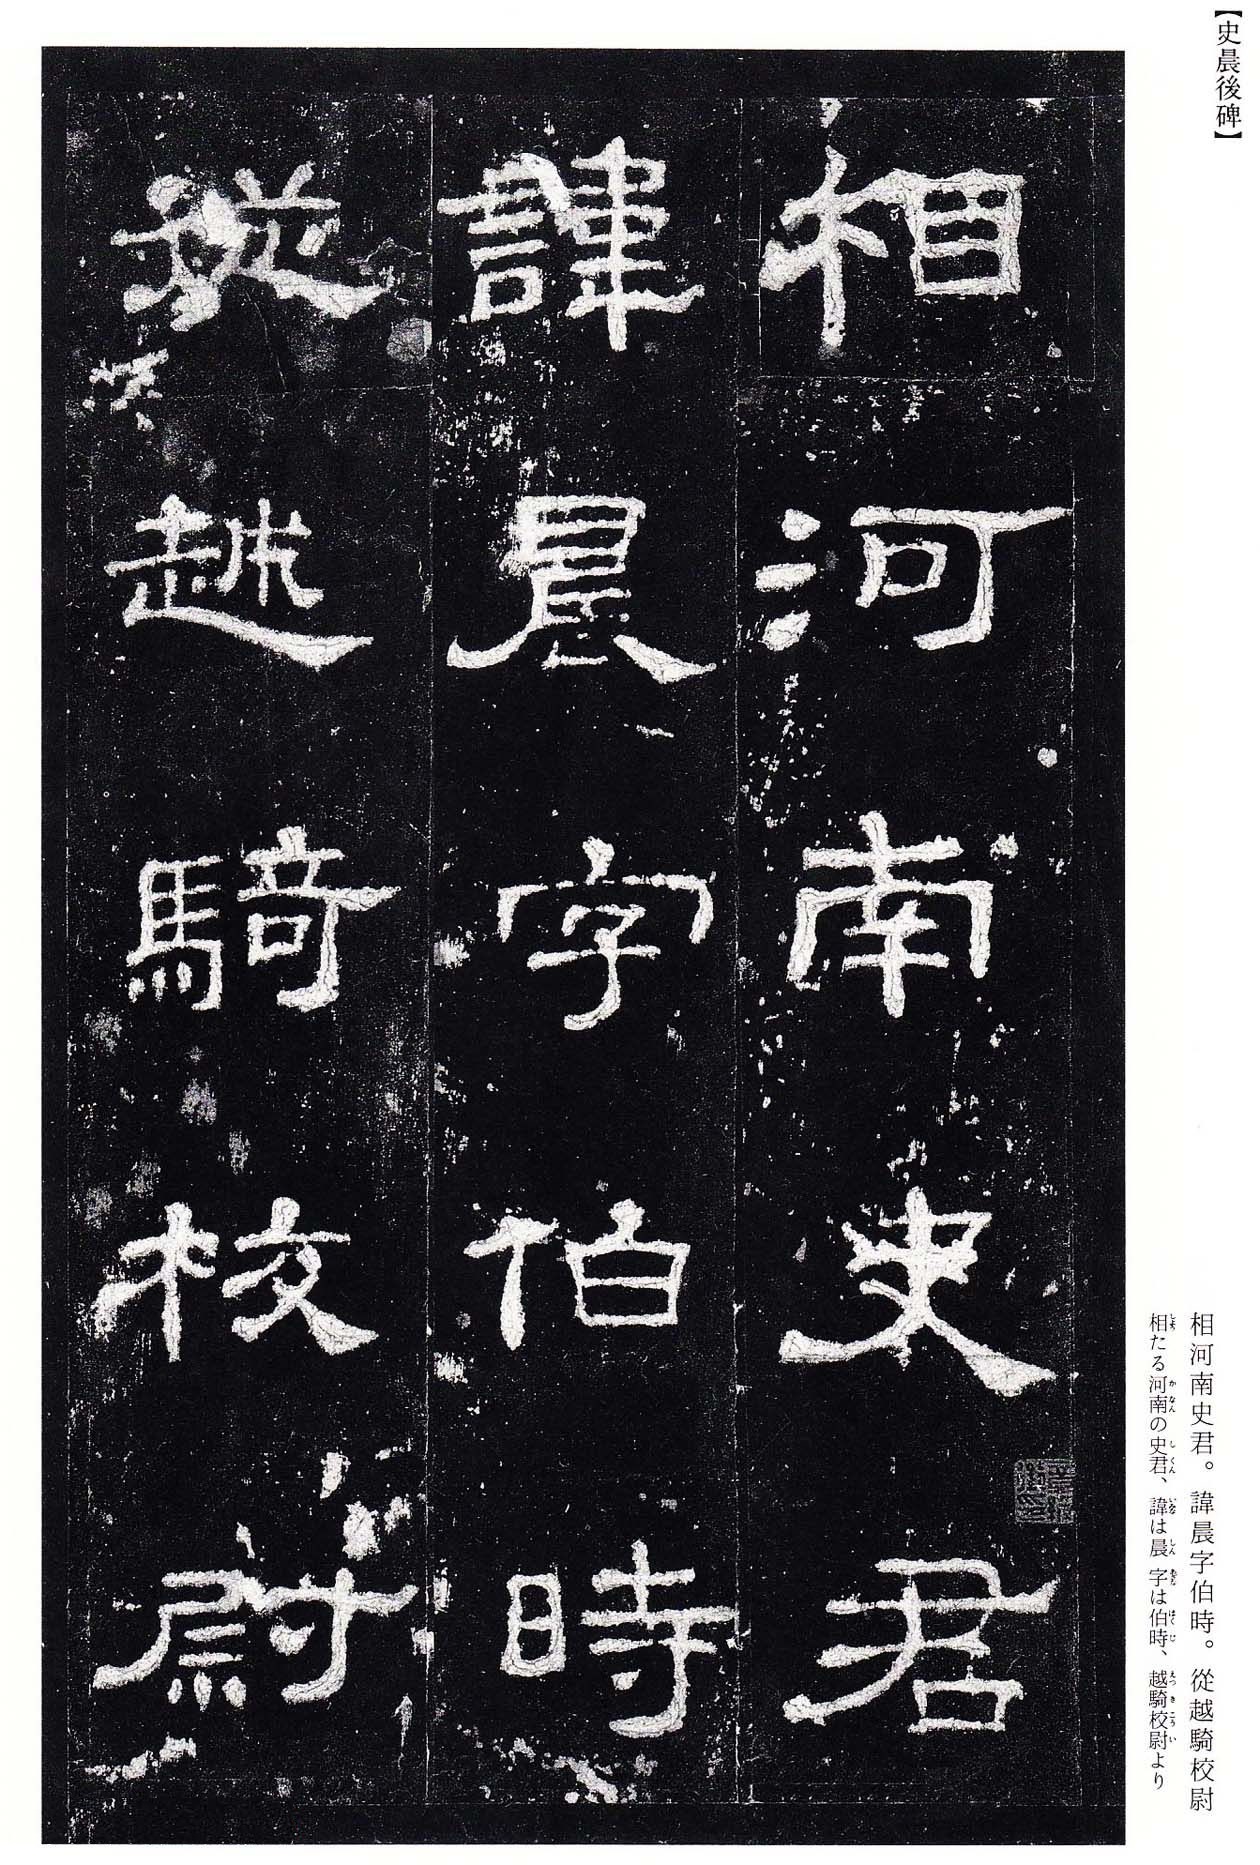 【史晨後碑】
相河南史君。諱晨字伯時。從越騎校尉
相たる河南の史君、諱は晨 字は伯時、越騎校尉より
相河南史君
諱晨字伯時
從越騎校尉